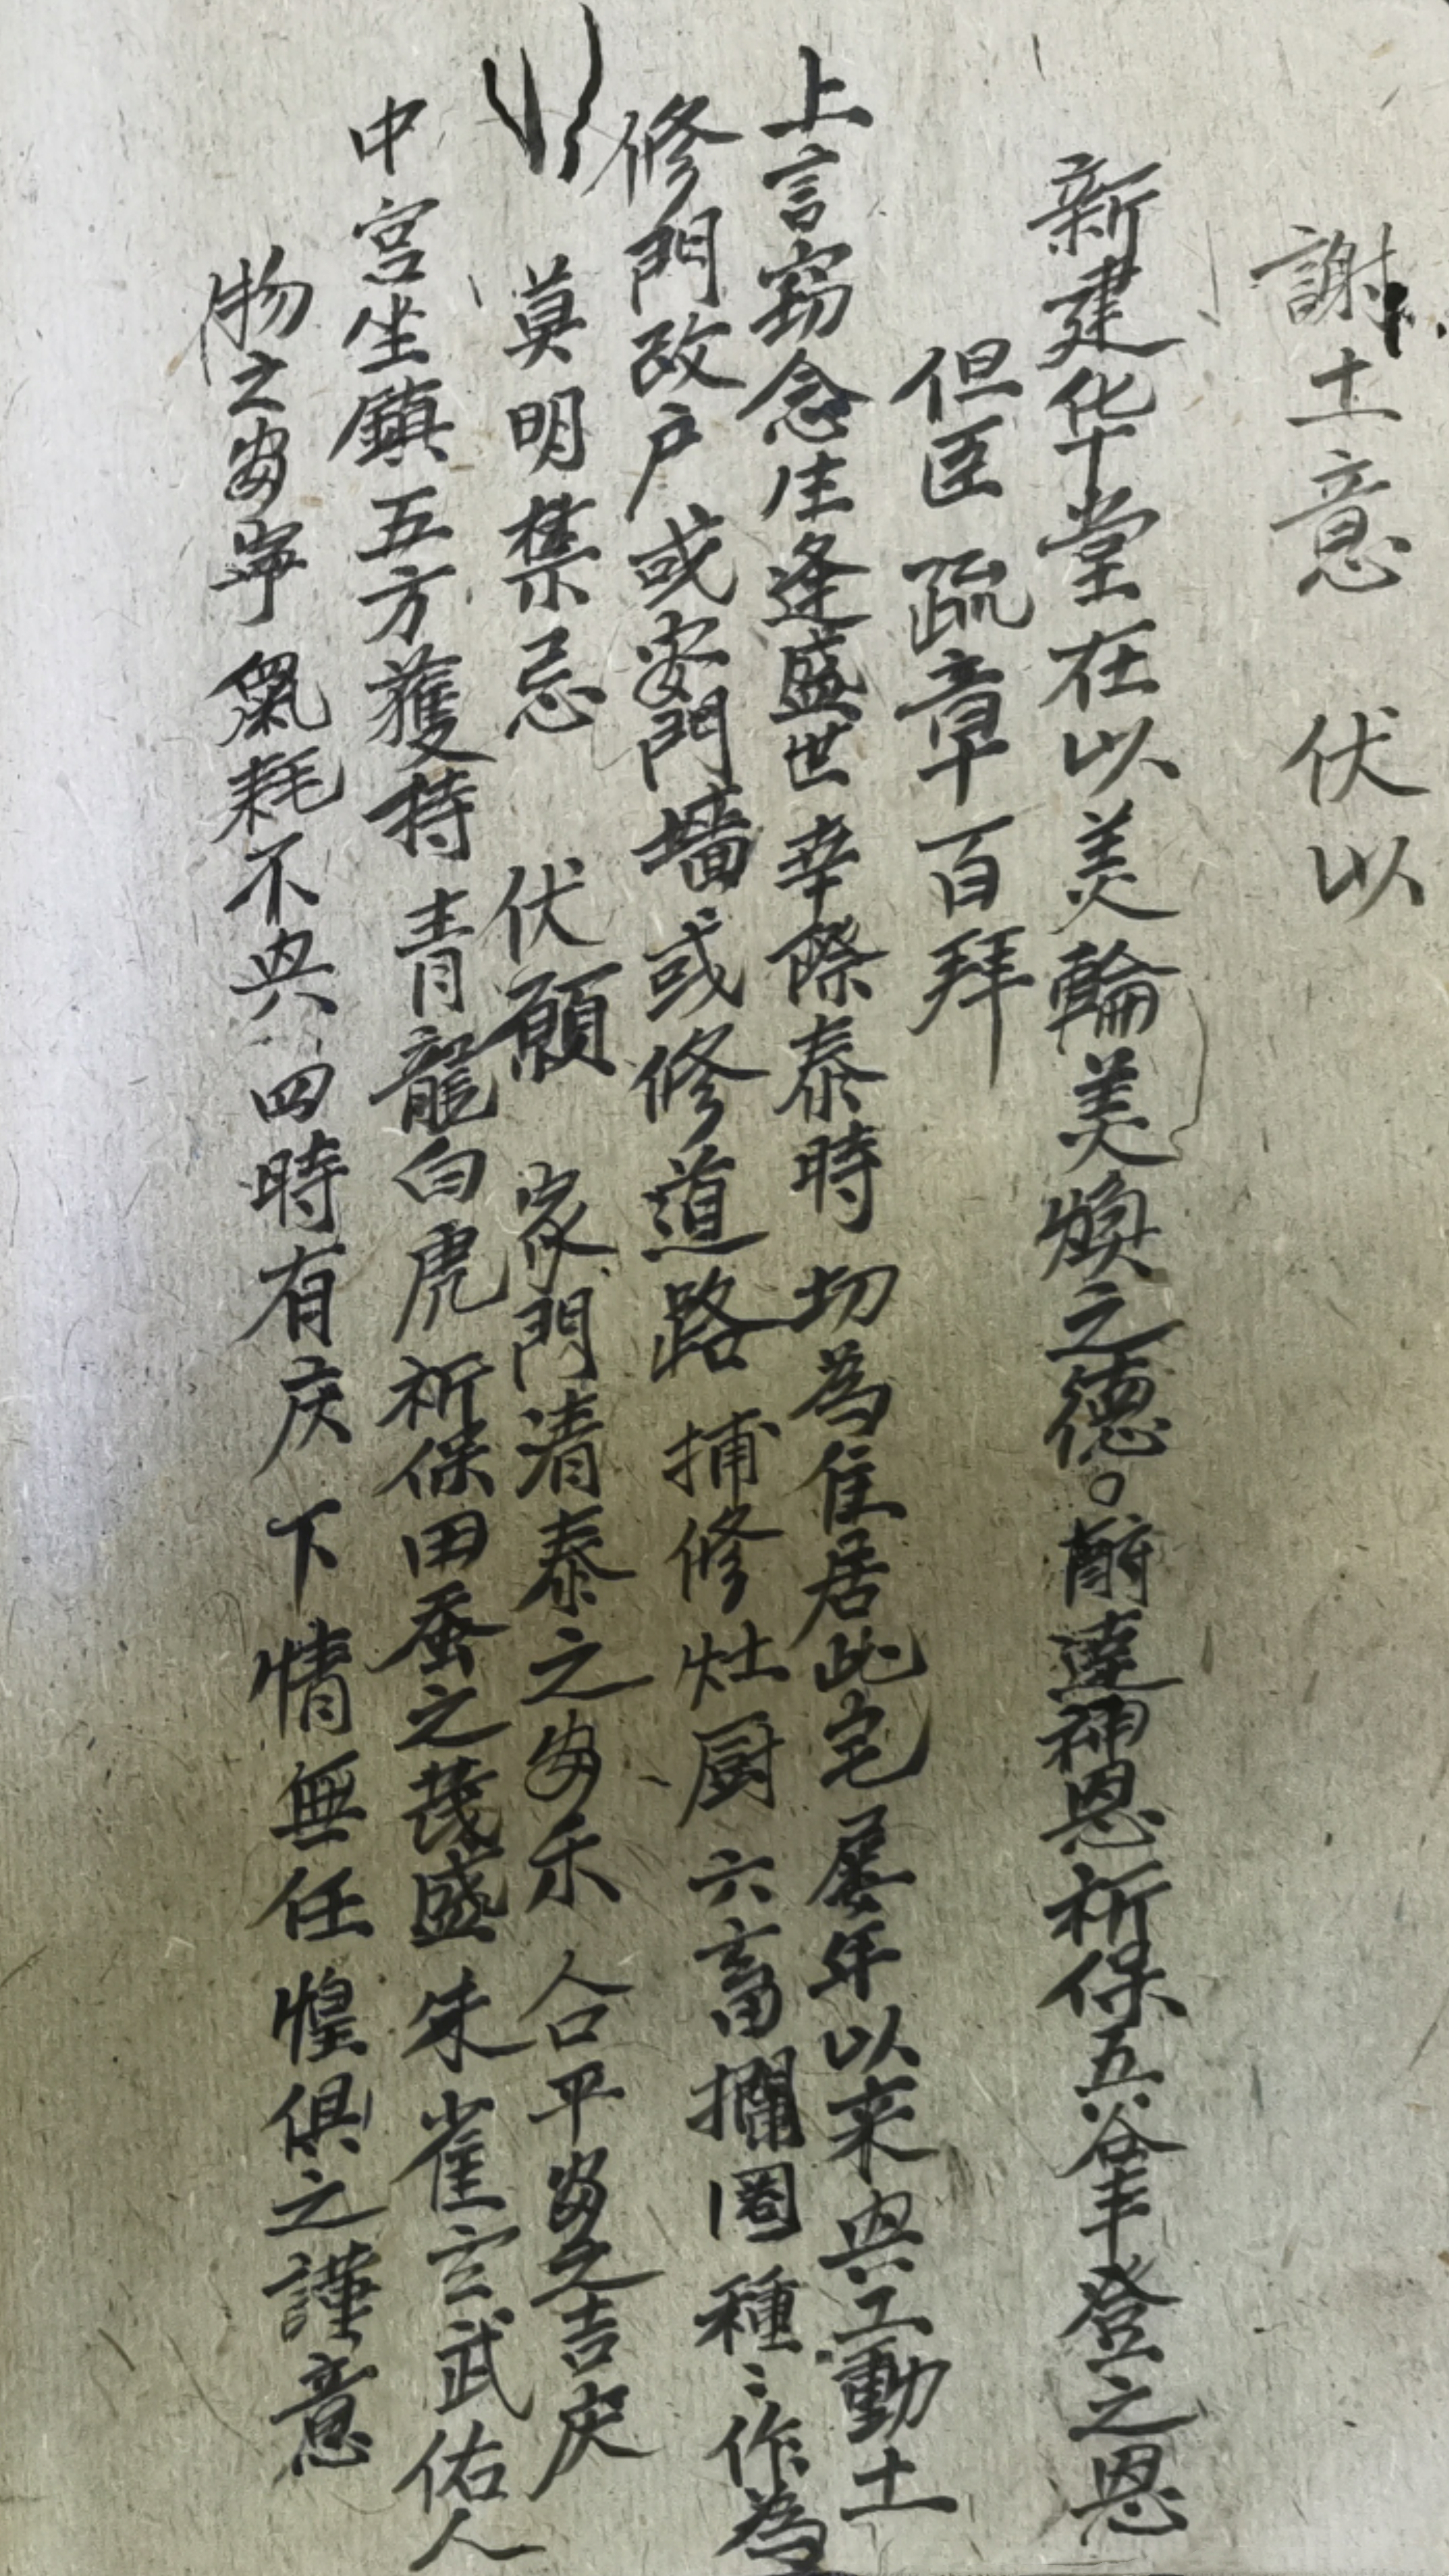 謝土意 伏以
新建华堂在以美輪美煥之德。酧達神恩祈保五谷丰登之恩
但臣 疏章百拜
上言窃念生逢盛世幸際泰時 切為住居此宅屡年以来兴工動土
修門改户或安門墻或修道路 捕修灶厨六畜攔圈種〻作為
莫明禁忌 伏願 家門清泰之安乐 合平安之吉庆
中宫坐鎮五方獲持青龍白虎 祈保田蚕之茂盛 朱雀玄武佑人
物之安寧 氣耗不兴 四時有庆 下情無任惶俱之謹意